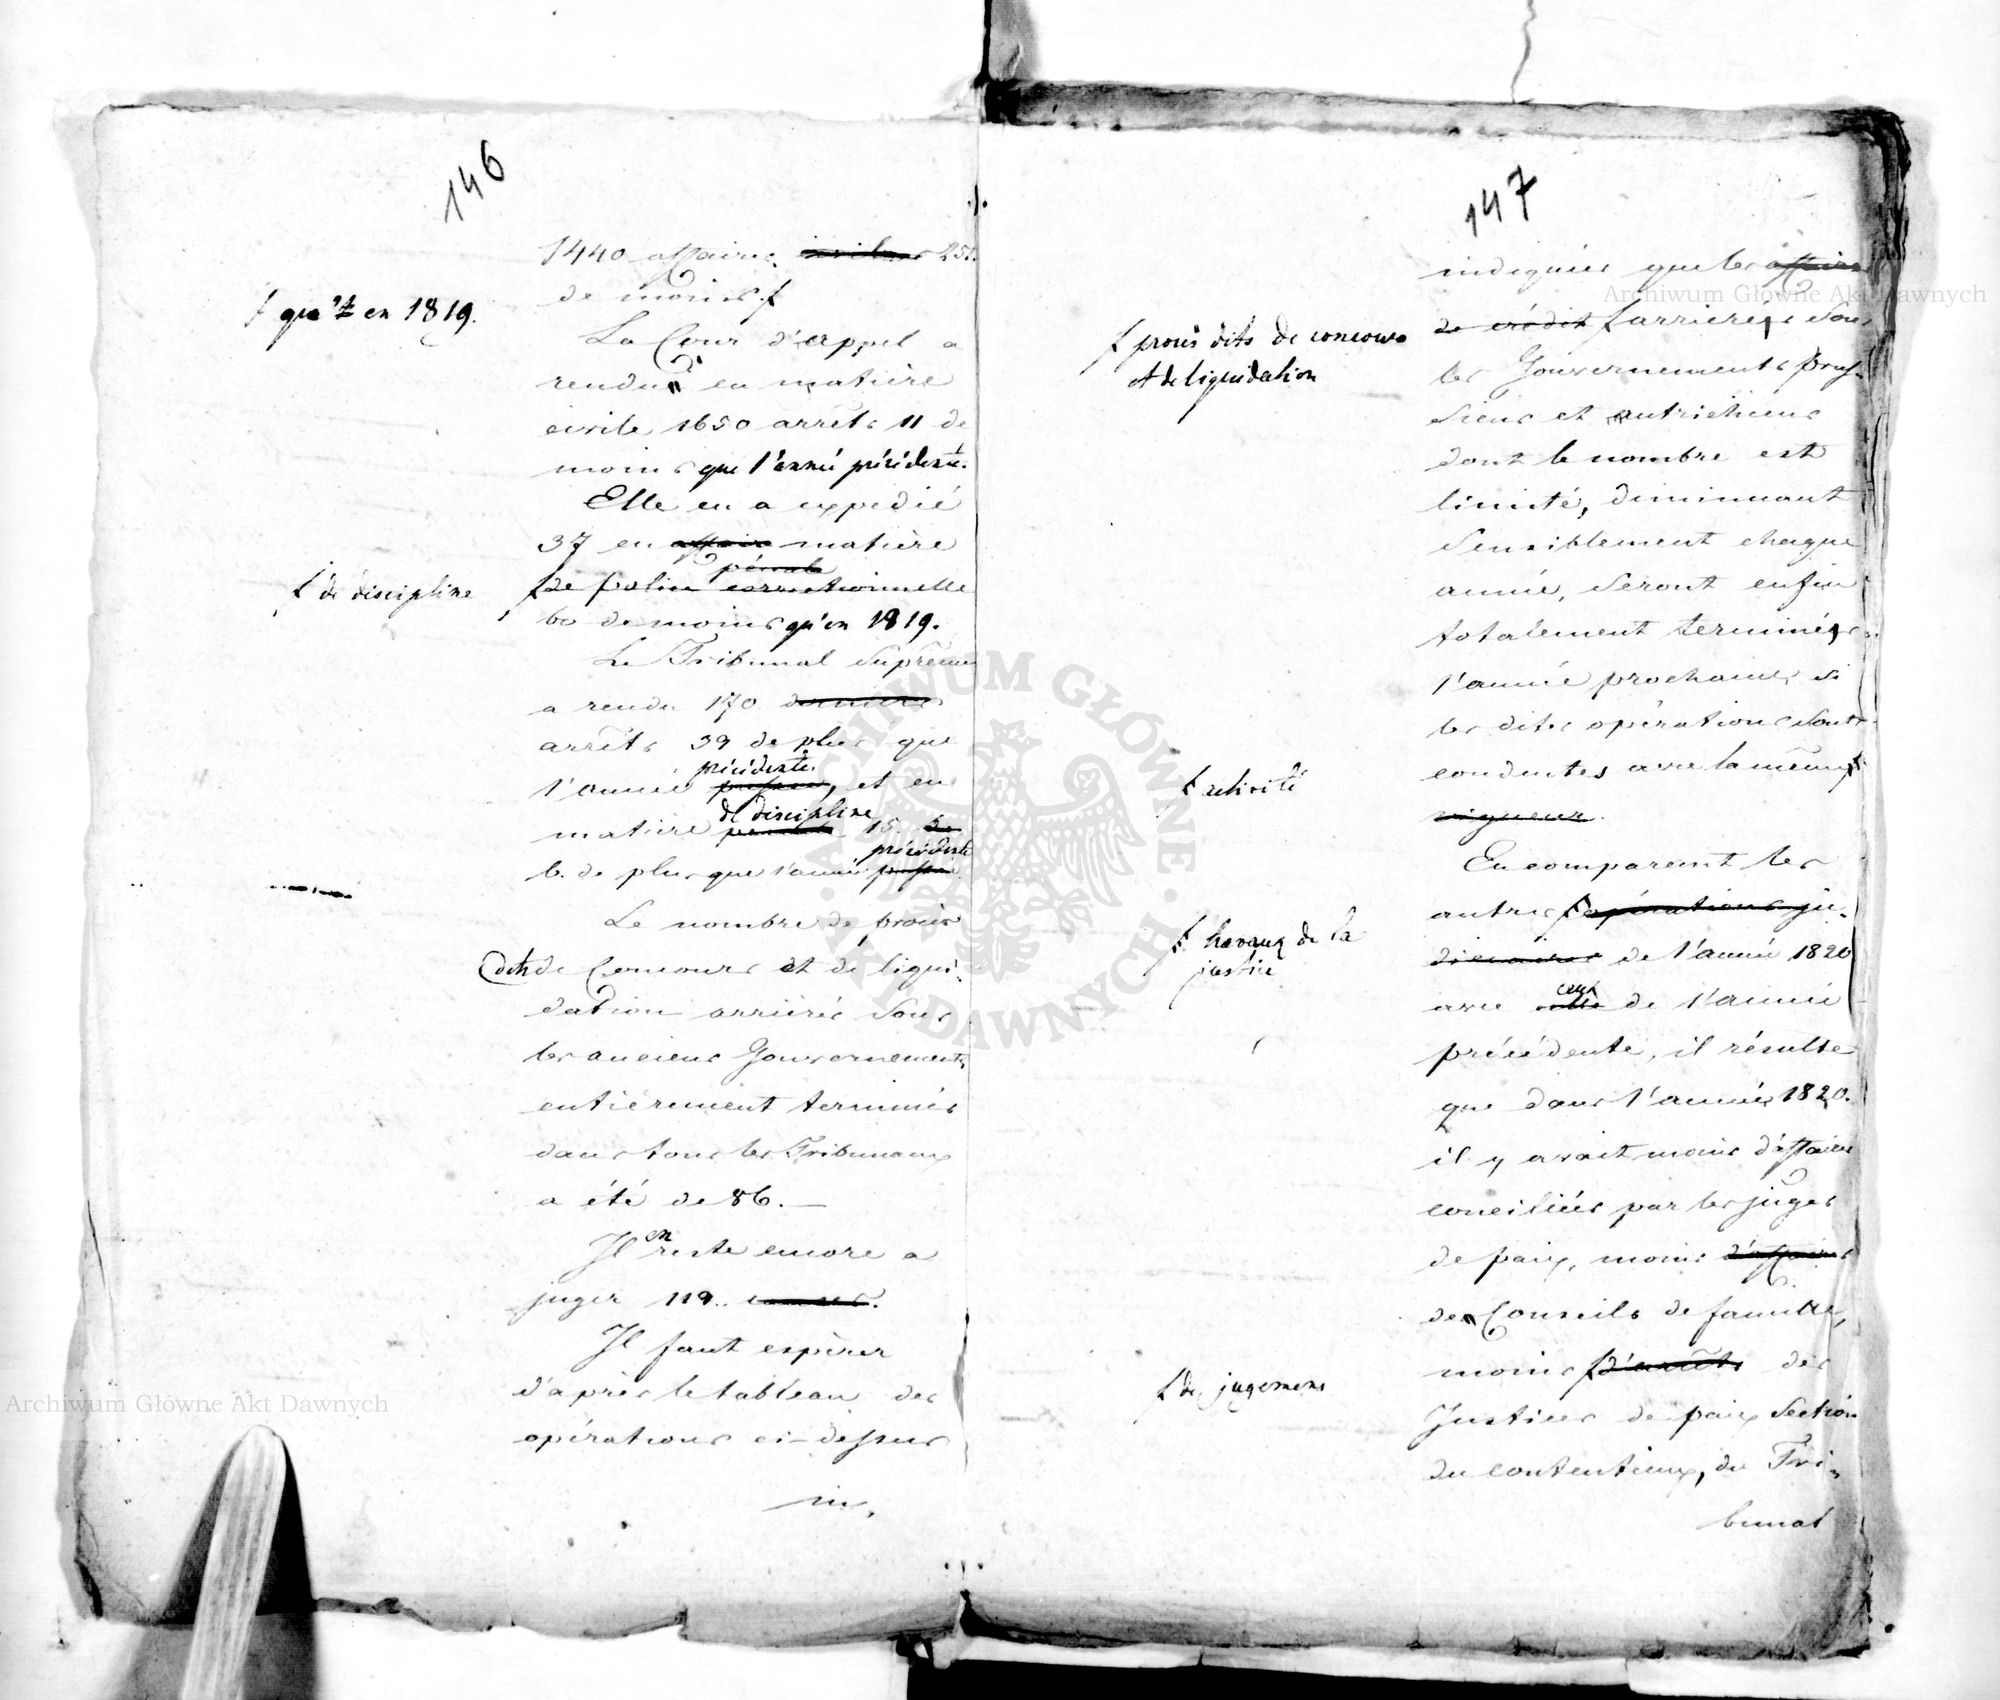 146
1440 affaires, civiles 251.
de moins. f
f qu'en 1819.
La Cour d'appel a
rendu en matière
civile 1650 arrêts 11 de
moins que l'année précédente.
Elle en a expédié
37 en affaire matière
pénale
f de police correctionnelle
f de discipline
60 de moins qu'en 1819.
Le Tribunal Suprême
a rendu 170
arrêts 39 de plus que
précédente
l'année passée, et en
de discipline
matière pénale 15. de
précédente
6. de plus que l'année passée.
Le nombre de procès
dits de Concours et de liqui-
dation arriérés sous
les anciens Gouvernements
entièrement terminés
dans tous les Tribunaux
a été de 86. —
en
Il reste encore a
juger 119.
Il faut espérer
d'après le tableau des
opérations ci-dessus
in,
147
indiquées que les affaires
de crédit f arriérés sous
f procès dits de concours
et de liquidation
les Gouvernements prus-
siens et autrichiens
dont le nombre est
limité, diminuant
sensiblement chaque
année, seront enfin
totalement terminés
l'année prochaine, si
les dites opérations sont
conduites avec la même f
f activité
vigueur.
En comparant les
autres f opérations ju-
diciaires de l'année 1820
f travaux de la
justice
ceux
avec celle de l'année
précédente, il résulte
que dans l'année 1820.
il y avait moins d'affaires
conciliées par les juges
de paix, moins d'affaires
de Conseils de famille,
moins f d'arrêts des
f de jugemens
Justices de paix Section
du contentieux, du Tri-
bunal
Archiwum Główne Akt Dawnych
Archiwum Główne Akt Dawnych
ARCHIWUM GŁÓWNE AKT DAWNYCH